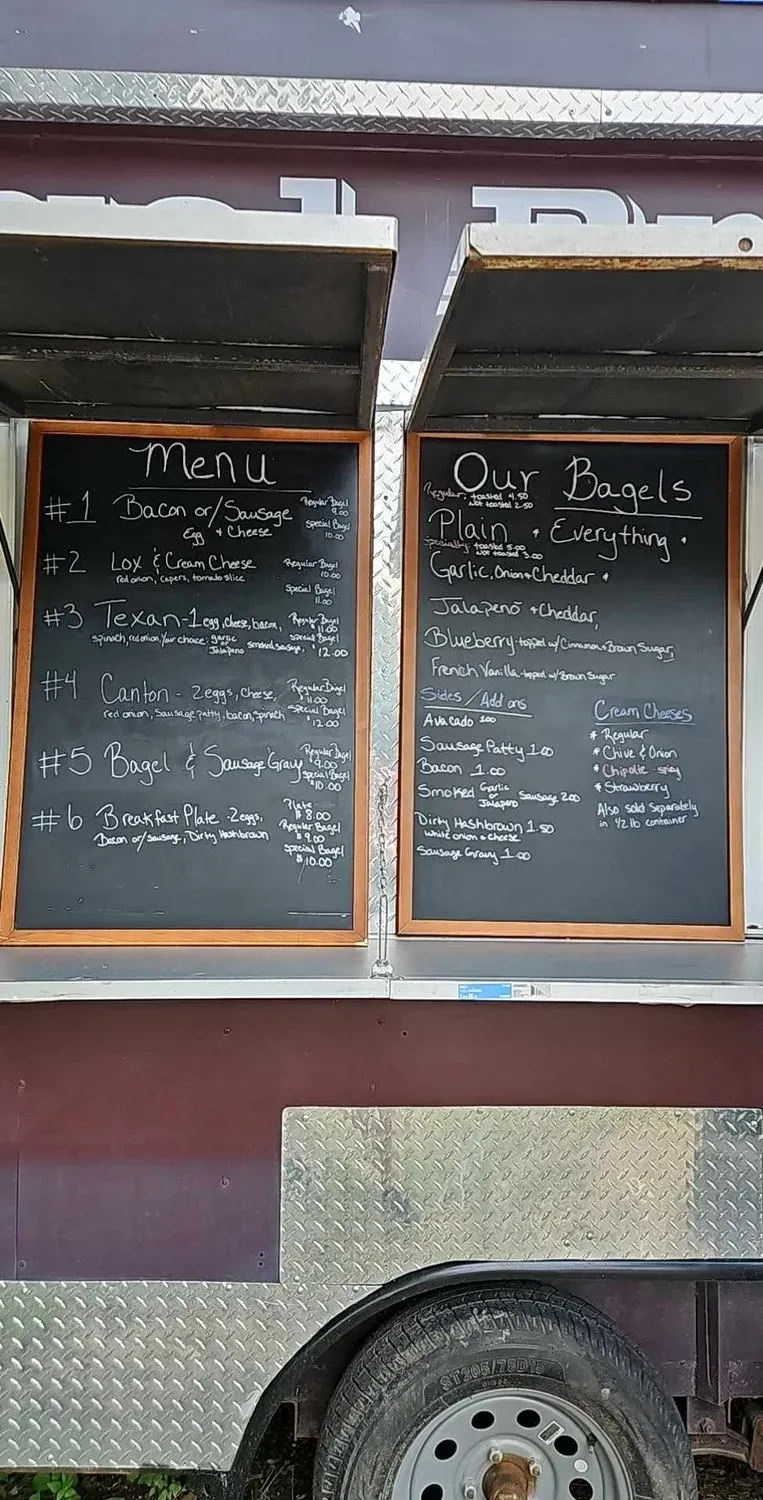 Menu
#1 Bacon or/Sausage
Egg + Cheese
Regular Bagel
9.00
Special Bagel
10.00
#2 Lox & Cream Cheese
red onion, capers, tomato slice
Regular Bagel
10.00
Special Bagel
11.00
#3 Texan - 1 egg, cheese, bacon,
spinach, red onion, Your choice: garlic
or
Jalapeno
smoked sausage,
Regular Bagel
11.00
Special Bagel
$12.00
#4 Canton - 2 eggs, cheese,
red onion, Sausage patty, bacon, spinach
Regular Bagel
$11.00
Special Bagel
$12.00
#5 Bagel & Sausage Gravy
Regular Bagel
$9.00
Special Bagel
$10.00
#6 Breakfast Plate - 2 eggs,
Bacon or/sausage, Dirty Hashbrown
Plate
$8.00
Regular Bagel
$9.00
Special Bagel
$10.00
Our Bagels
Regular: toasted 4.50
Not toasted 2.50
Plain • Everything •
Specialty: toasted 5.00
Not toasted 3.00
Garlic, Onion + Cheddar •
Jalapeno + Cheddar,
Blueberry - topped w/ Cinnamon + Brown Sugar,
French Vanilla - topped w/ Brown Sugar
Sides / Add ons
Avacado 1.00
Sausage Patty 1.00
Bacon 1.00
Smoked Garlic
or
Jalapeno
Sausage 2.00
Dirty Hashbrown 1.50
white onion + cheese
Sausage Gravy 1.00
Cream Cheeses
* Regular
* Chive & Onion
* Chipolte - spicy
* Strawberry
Also sold Separately
in 1/2 lb container
ST205/75D15